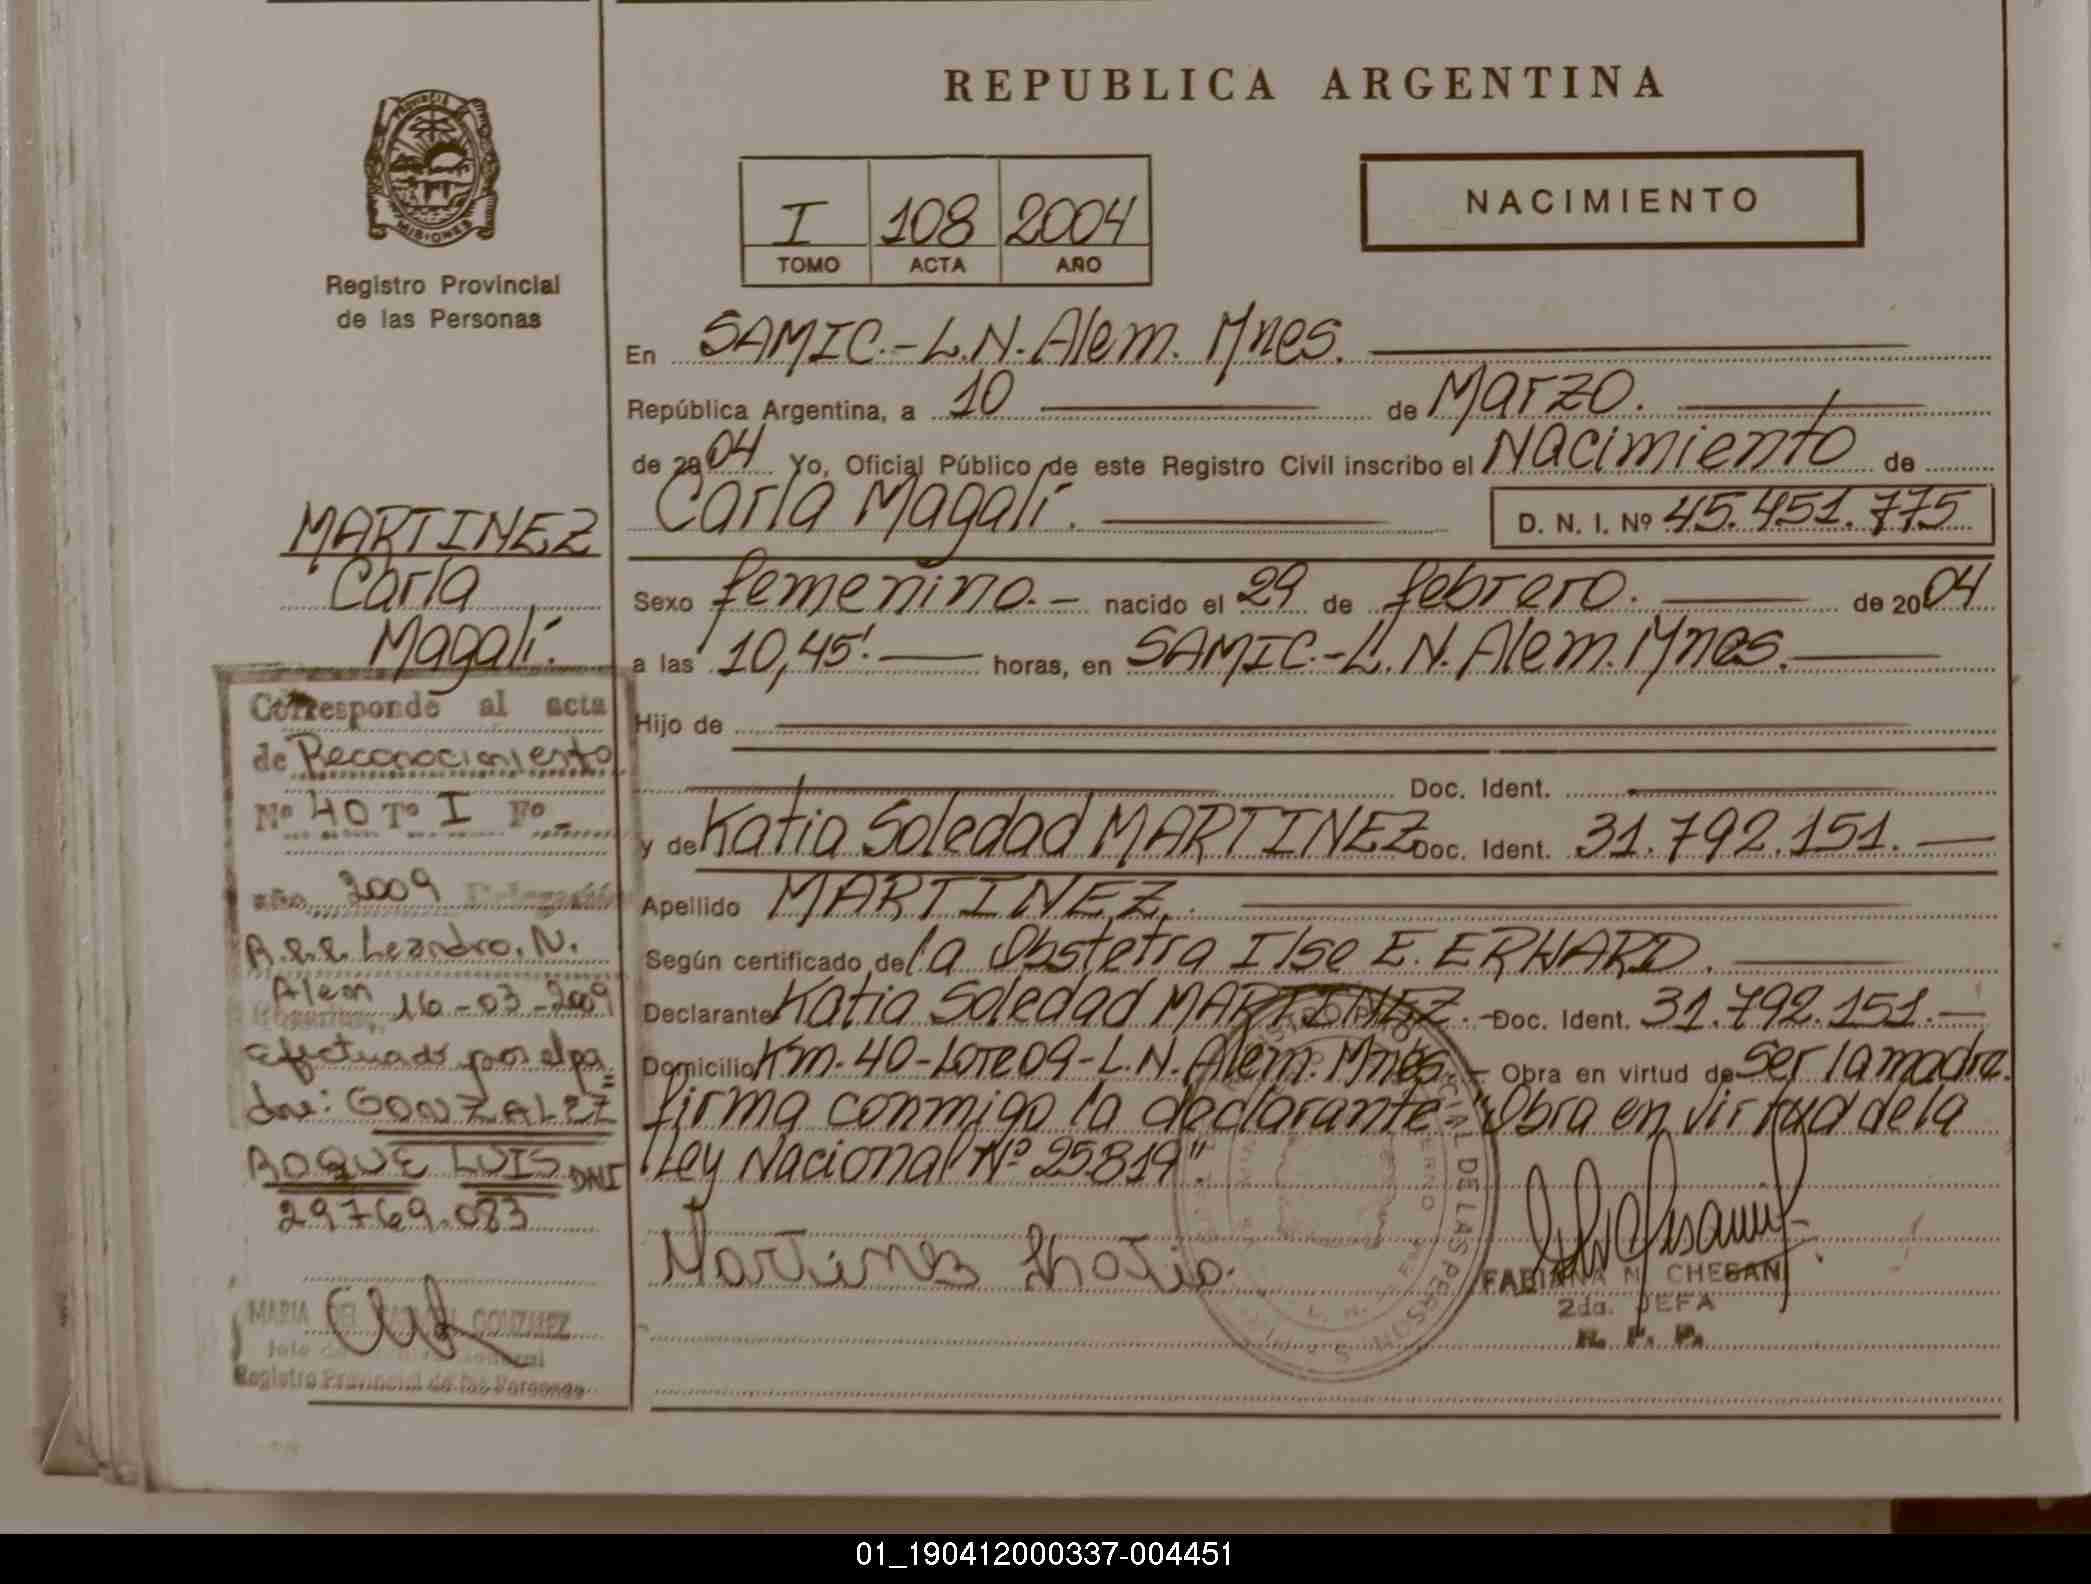 REPUBLICA ARGENTINA
PROVINCIA
MISIONES
Registro Provincial
de las Personas
I 108 2004
TOMO ACTA AÑO
NACIMIENTO
En SAMIC.-L.N.Alem. Mnes.
República Argentina, a 10 de Marzo.
de 2004 Yo, Oficial Público de este Registro Civil inscribo el Nacimiento de
Carla Magalí. D. N. I. Nº 45.451.775
Sexo femenino.- nacido el 29 de febrero. de 2004
a las 10,45'. horas, en SAMIC.-L.N.Alem.Mnes.
Hijo de
Doc. Ident.
y de Katia Soledad MARTINEZ Doc. Ident. 31.792.151.
Apellido MARTINEZ.
Según certificado de la Obstetra Ilse E. ERHARD.
Declarante Katia Soledad MARTINEZ.- Doc. Ident. 31.792.151.-
Domicilio Km.40-Lote 09-L.N.Alem.Mnes.- Obra en virtud de Ser la madre.
firma conmigo la declarante "Obra en virtud de la
Ley Nacional Nº 25819"
Martinez Katia.
FABIANA N. CHESANI
2da. JEFA
R. P. P.
MARTINEZ
Carla
Magalí.
Corresponde al acta
de Reconocimiento
Nº 40 Tº I Fº -
año 2009 Delegación
Leandro. N.
Alem 16-03-2009
efectuado por el pa
dre: GONZALEZ
ROQUE LUIS DNI
29769.083
MARIA DEL GONZALEZ
Registro Provincial de las Personas
DE LAS PERSONAS
01_190412000337-004451